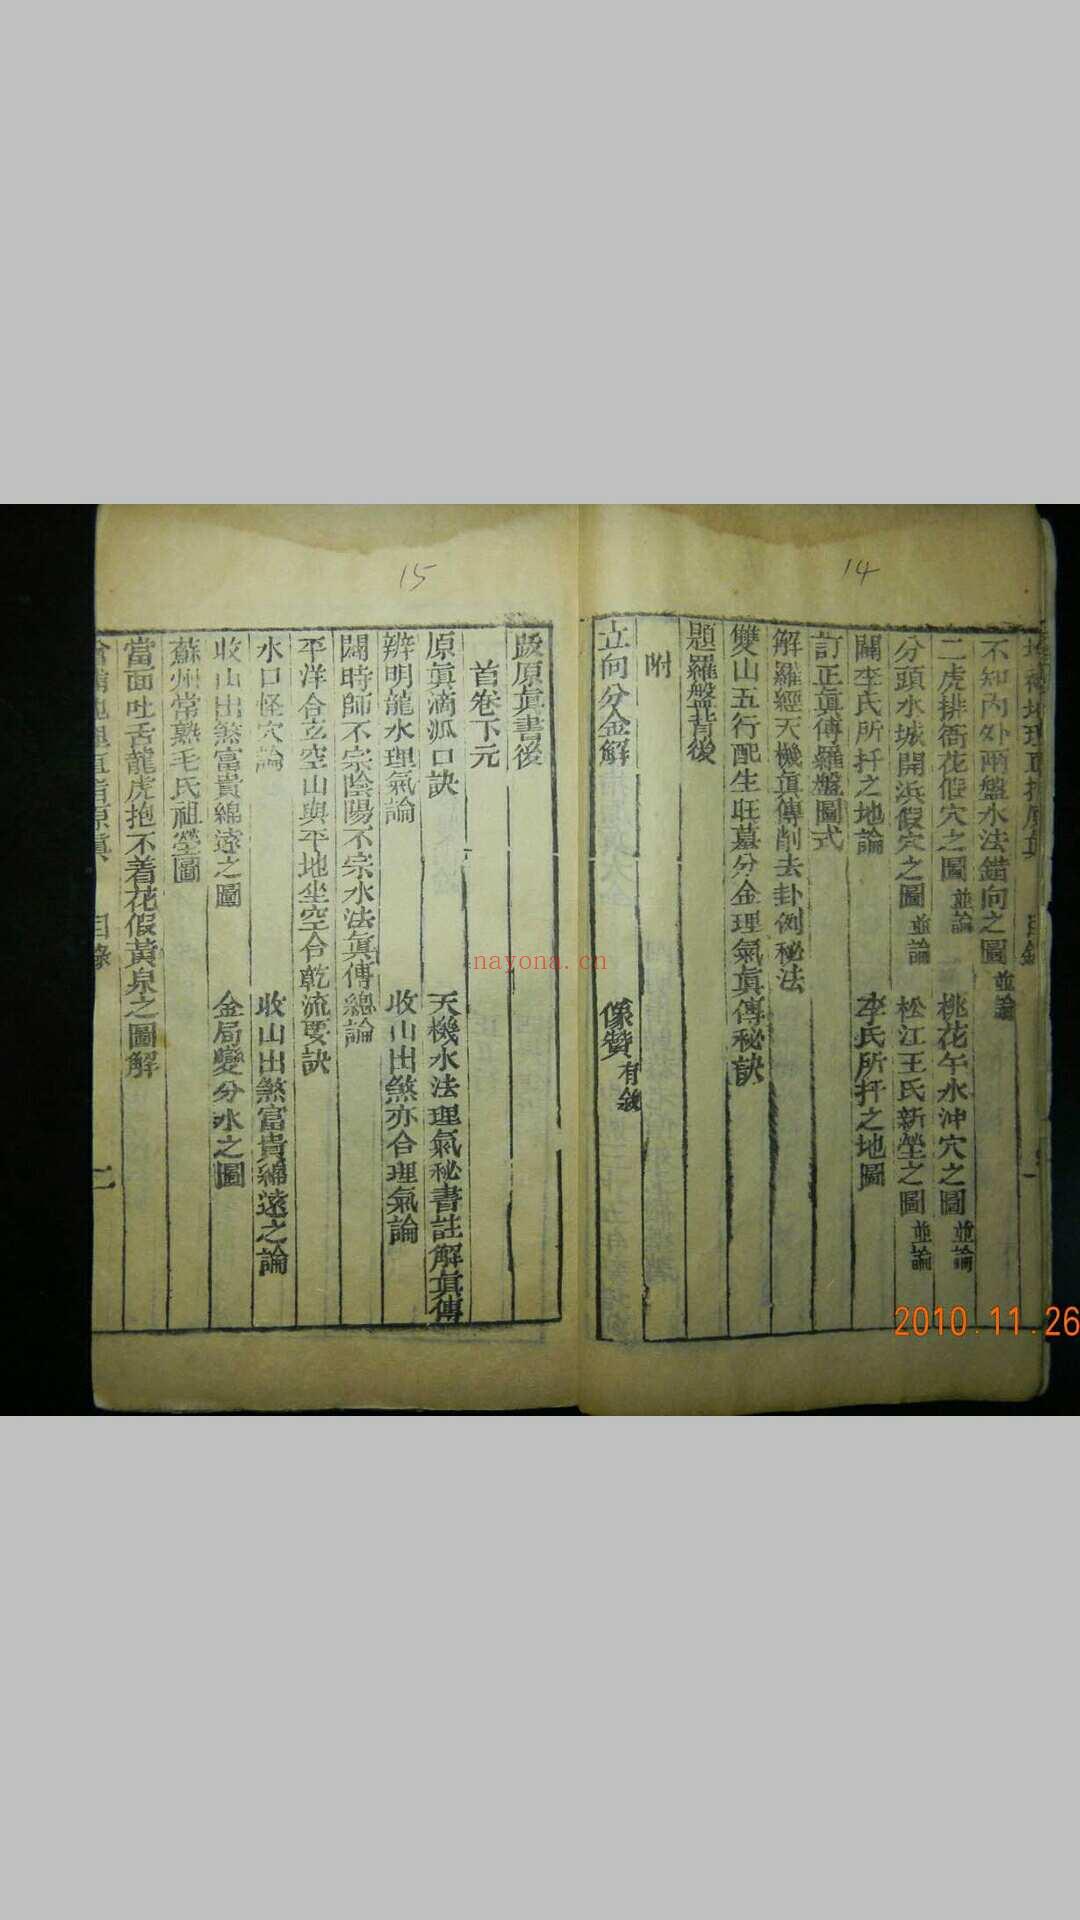 14
不知內外兩盤水法錯向之圖 並論
二虎排衙花假穴之圖 並論 桃花午水沖穴之圖 並論
分頭水城開浜假穴之圖 並論 松江王氏新塋之圖 並論
闢李氏所扦之地論 李氏所扦之地圖
訂正眞傳羅盤圖式
解羅經天機眞傳削去卦例秘法
雙山五行配生旺墓分金理氣眞傳秘訣
題羅盤背後
附
立向分金解 像贊 有敘
15
跋原眞書後
首卷下元
原眞滴派口訣 天機水法理氣秘書註解眞傳
辨明龍水理氣論 收山出煞亦合理氣論
闢時師不宗陰陽不宗水法眞傳總論
平洋合玄空山與平地坐空合乾流要訣
水口怪穴論 收山出煞富貴綿遠之論
收山出煞富貴綿遠之圖 金局變分水之圖
蘇州常熟毛氏祖塋圖
當面吐舌龍虎抱不着花假黃泉之圖解
目錄 二
nayona.cn
2010.11.26